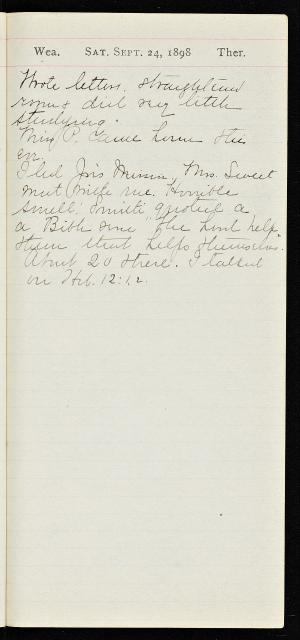 Wea. SAT. SEPT. 24, 1898 Ther.
Wrote letters, straightened
room & did very little
studying.
Miss P. came home this
ev.
I led Miss. Mrs. Sweet
went with me. Horrible
smell. quoted a
a Bible one "the Lord help
them that helps themselves."
About 20 there. I talked
on Heb. 12:1,2.